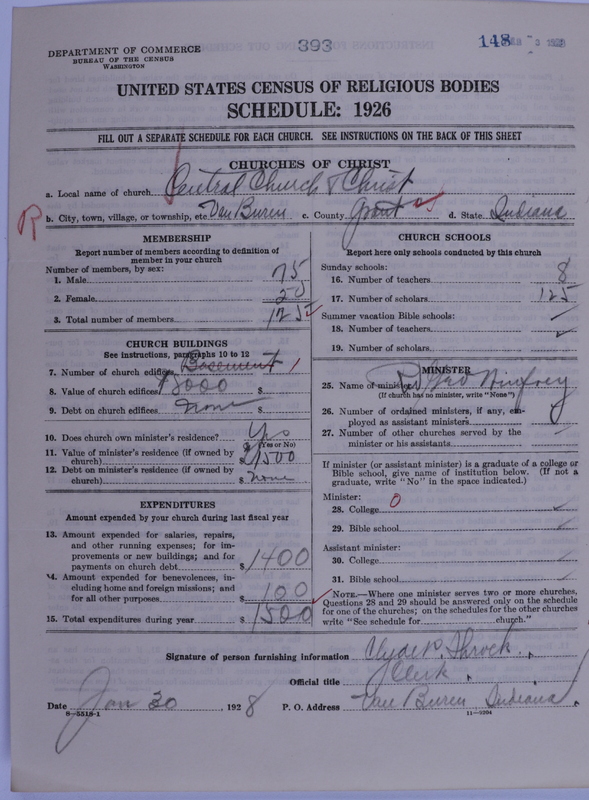 393
148
DEPARTMENT OF COMMERCE
BUREAU OF THE CENSUS
WASHINGTON
UNITED STATES CENSUS OF RELIGIOUS BODIES
SCHEDULE: 1926
FILL OUT A SEPARATE SCHEDULE FOR EACH CHURCH. SEE INSTRUCTIONS ON THE BACK OF THIS SHEET
CHURCHES OF CHRIST
a. Local name of church Central Church of Christ
R
b. City, town, village, or township, etc. Van Buren c. County Grant d. State Indiana
MEMBERSHIP
Report number of members according to definition of
member in your church
Number of members, by sex:
1. Male 75
2. Female 50
3. Total number of members 125
CHURCH BUILDINGS
See instructions, paragraphs 10 to 12
7. Number of church edifices Basement 1
8. Value of church edifices $8000 $
9. Debt on church edifices none $
10. Does church own minister's residence? Yes
(Yes or No)
11. Value of minister's residence (if owned by
church) $1500
12. Debt on minister's residence (if owned by
church) $ none
EXPENDITURES
Amount expended by your church during last fiscal year
13. Amount expended for salaries, repairs,
and other running expenses; for im-
provements or new buildings; and for
payments on church debt $1400
14. Amount expended for benevolences, in-
cluding home and foreign missions; and
for all other purposes 100
15. Total expenditures during year $1500
CHURCH SCHOOLS
Report here only schools conducted by this church
Sunday schools:
16. Number of teachers 8
17. Number of scholars 125
Summer vacation Bible schools:
18. Number of teachers
19. Number of scholars
MINISTER
25. Name of minister Rev Geo Winfrey
(If church has no minister, write "None")
26. Number of ordained ministers, if any, em-
ployed as assistant ministers
27. Number of other churches served by the
minister or his assistants
If minister (or assistant minister) is a graduate of a college or
Bible school, give name of institution below. (If not a
graduate, write "No" in the space indicated.)
Minister:
28. College 0
29. Bible school
Assistant minister:
30. College
31. Bible school
NOTE.—Where one minister serves two or more churches,
Questions 28 and 29 should be answered only on the schedule
for one of the churches; on the schedules for the other churches
write "See schedule for church."
Signature of person furnishing information Clyde R. Throck
Official title Clerk
Date Jan 30, 1928 P. O. Address Van Buren Indiana
8-5518-1
11-9204